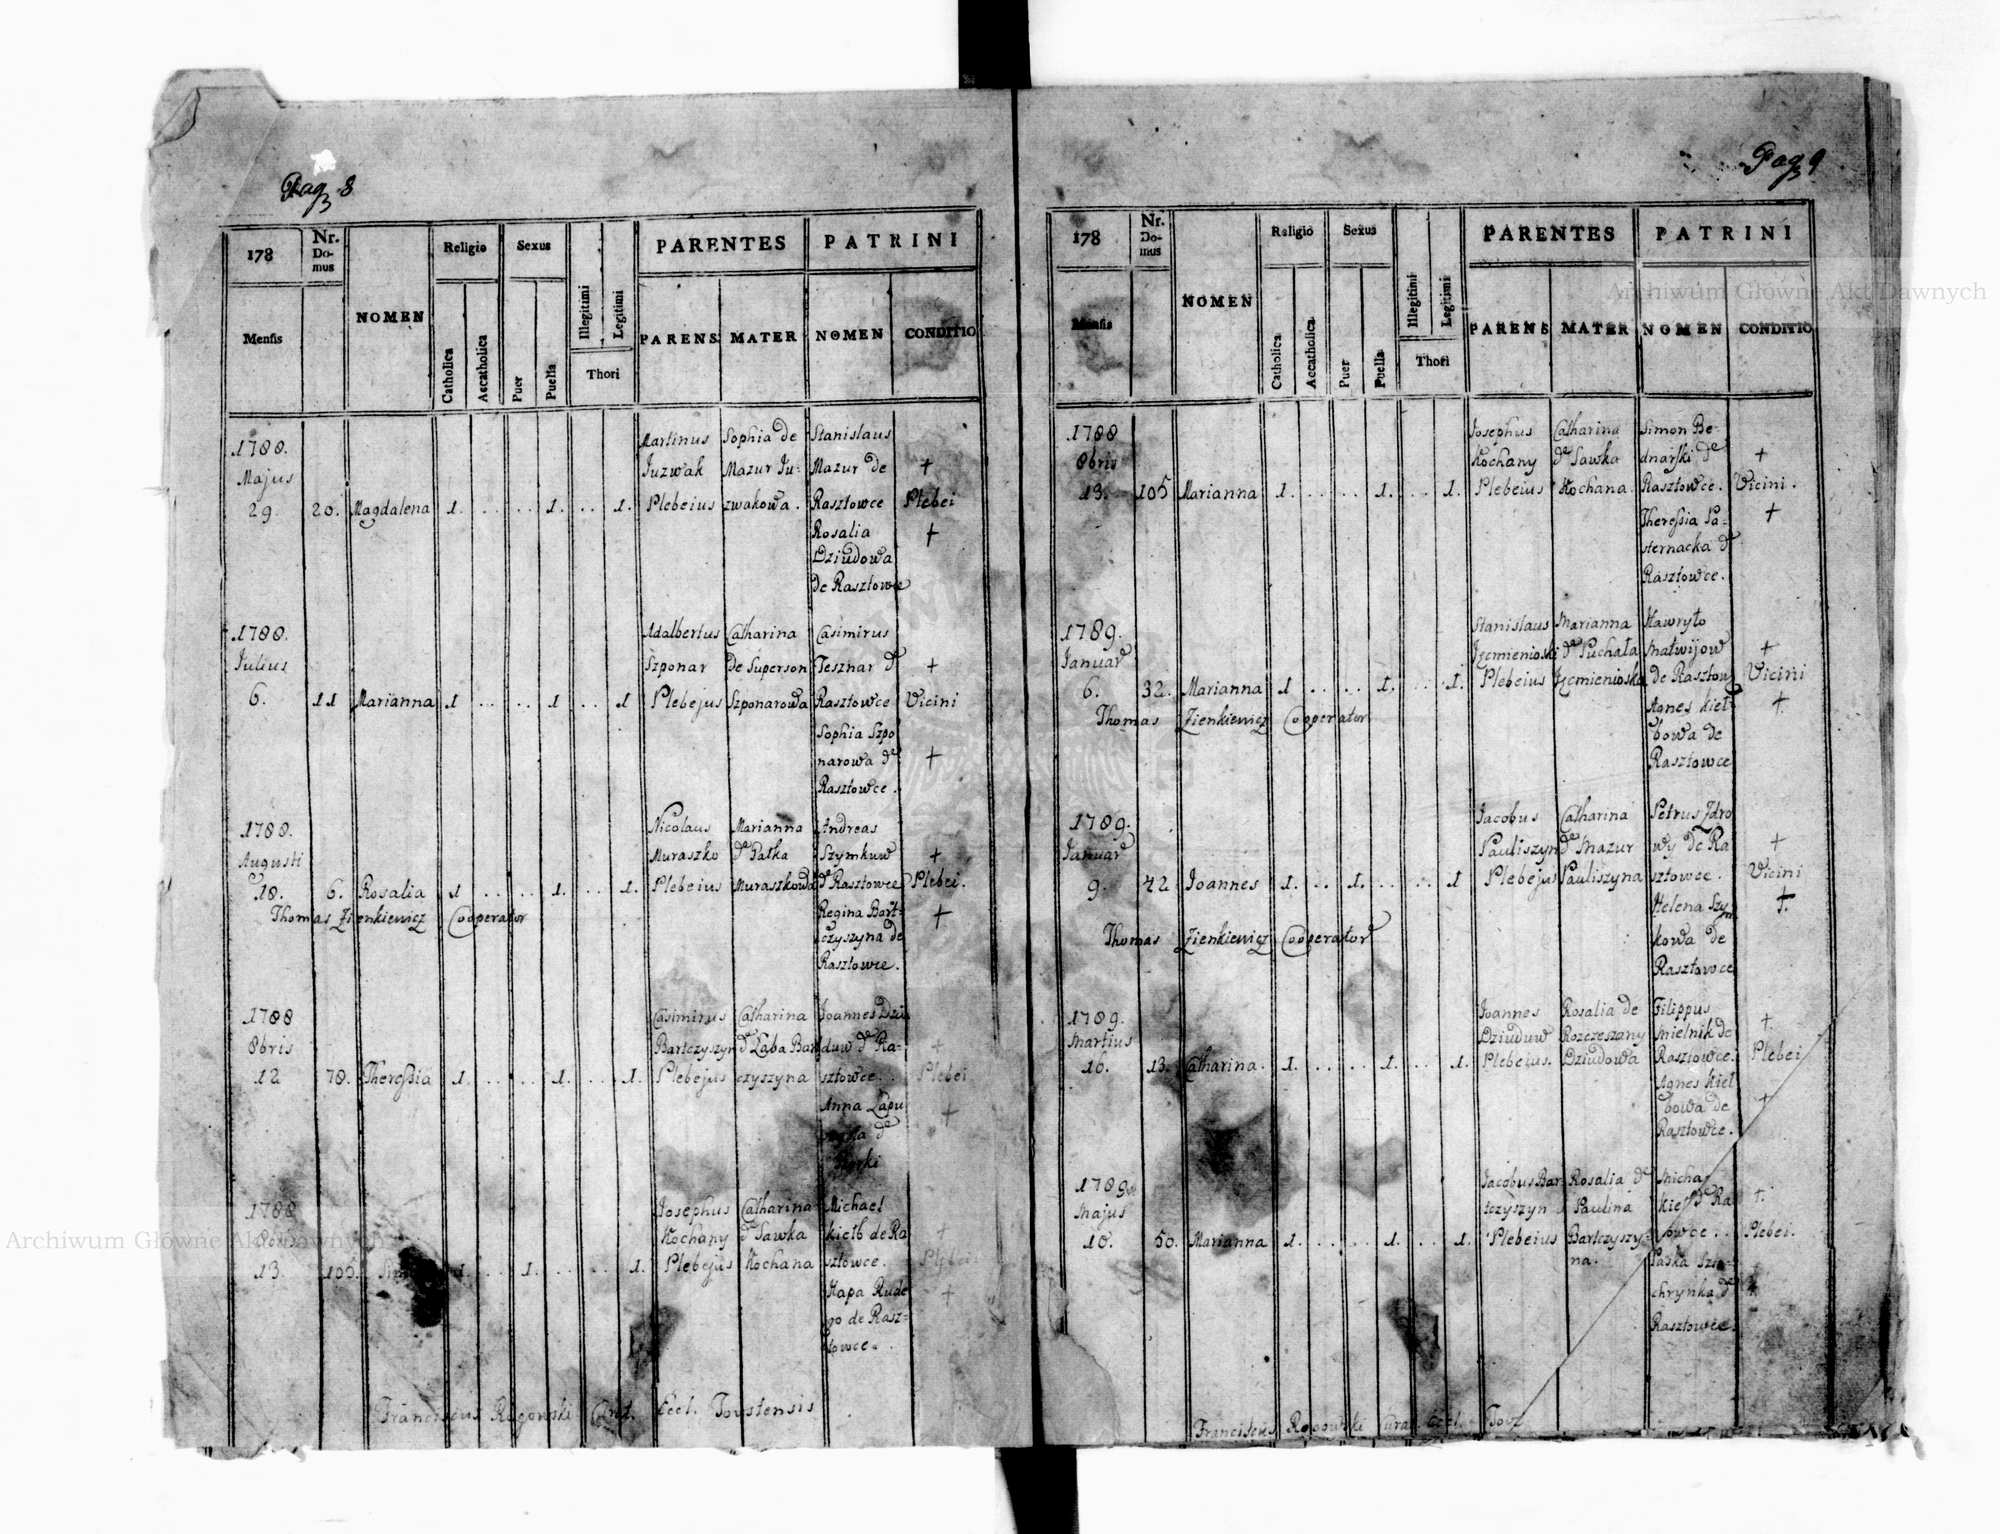 Pag 8
178
Nr. Domus
NOMEN
Religio
Sexus
Illegitimi
Legitimi
PARENTES
PATRINI
Mensis
Catholica
Accatholica
Puer
Puella
Thori
PARENS
MATER
NOMEN
CONDITIO
1788. Martinus Sophia de Stanislaus
Majus Juzwak Mazur Ju- Mazur de +
29. 26. Magdalena 1. . . . . 1. . . 1. Plebeius zwakowa. Rasztowce Plebei
Rosalia +
Dziudowa
de Rasztowce
1788. Adalbertus Catharina Casimirus
Julius Szponar de Superson Tesznar de +
6. 11 Marianna 1 . . . . 1 . . 1 Plebejus Szponarowa Rasztowce Vicini
Sophia Szpo
narowa de +
Rasztowce.
1788. Nicolaus Marianna Andreas
Augusti Muraszko de Patka Szymkuw +
18. 6. Rosalia 1 . . . . 1. . . 1. Plebeius Muraszkowa de Rasztowce Plebei.
Thomas Zienkiewicz Cooperator Regina Bart- +
czyszyna de
Rasztowce.
1788 Casimirus Catharina Joannes Dziu
8bris Bartczyszyn de Łaba Bart duw de Ra- +
12 78. Theressia 1. . . . . 1. . . 1. Plebejus czyszyna sztowce. Plebei
Anna Łapu +
de
1788 Josephus Catharina Michael
8bris Kochany de Sawka Kiełb de Ra +
13. 105. 1. . . 1. . . . 1. Plebejus Kochana sztowce. Plebei
Hapa Rude +
go de Rasz-
towce.
Franciscus Rogowski Curat. Eccl. Toustensis
Pag 9
178
Nr. Domus
NOMEN
Religio
Sexus
Illegitimi
Legitimi
PARENTES
PATRINI
Mensis
Catholica
Accatholica
Puer
Puella
Thori
PARENS
MATER
NOMEN
CONDITIO
1788 Josephus Catharina Simon Be-
8bris Kochany de Sawka dnarski de +
13. 105 Marianna 1. . . . . 1. . . 1. Plebeius Kochana. Rasztowce. Vicini.
Theressia Pa- +
sternacka de
Rasztowce.
1789. Stanislaus Marianna Hawryło
Januar Jęcmienioski de Puchała Matwijow +
6. 32. Marianna 1 . . . . 1. . . 1. Plebeius Jęcmienioska de Rasztow Vicini
Thomas Zienkiewicz Cooperator Agnes Kieł- +
bowa de
Rasztowce
1789. Jacobus Catharina Petrus Zdro
Januar Pauliszyn de Mazur wy de Ra +
9. 42 Joannes 1. . . 1. . . . 1 Plebejus Pauliszyna sztowce. Vicini
Helena Szym +
Thomas Zienkiewicz Cooperator kowa de
Rasztowce
1789. Joannes Rosalia de Filippus
Martius Dziuduw Rozczeszany Mielnik de +
16. 13. Catharina. 1. . . . . 1. . . 1. Plebeius. Dziudowa Rasztowce. Plebei
Agnes Kieł +
bowa de
Rasztowce.
1789. Jacobus Bar- Rosalia de Micha
Majus tczyszyn Paulina Kieł de Ra +
18. 50. Marianna 1. . . . . 1. . . 1. Plebeius Bartczyszy- owce. Plebei.
na. Paska
chrynka de +
Rasztowce.
Franciscus Rogowski Curat. Eccl. Toust
Archiwum Główne Akt Dawnych
Archiwum Główne Akt Dawnych